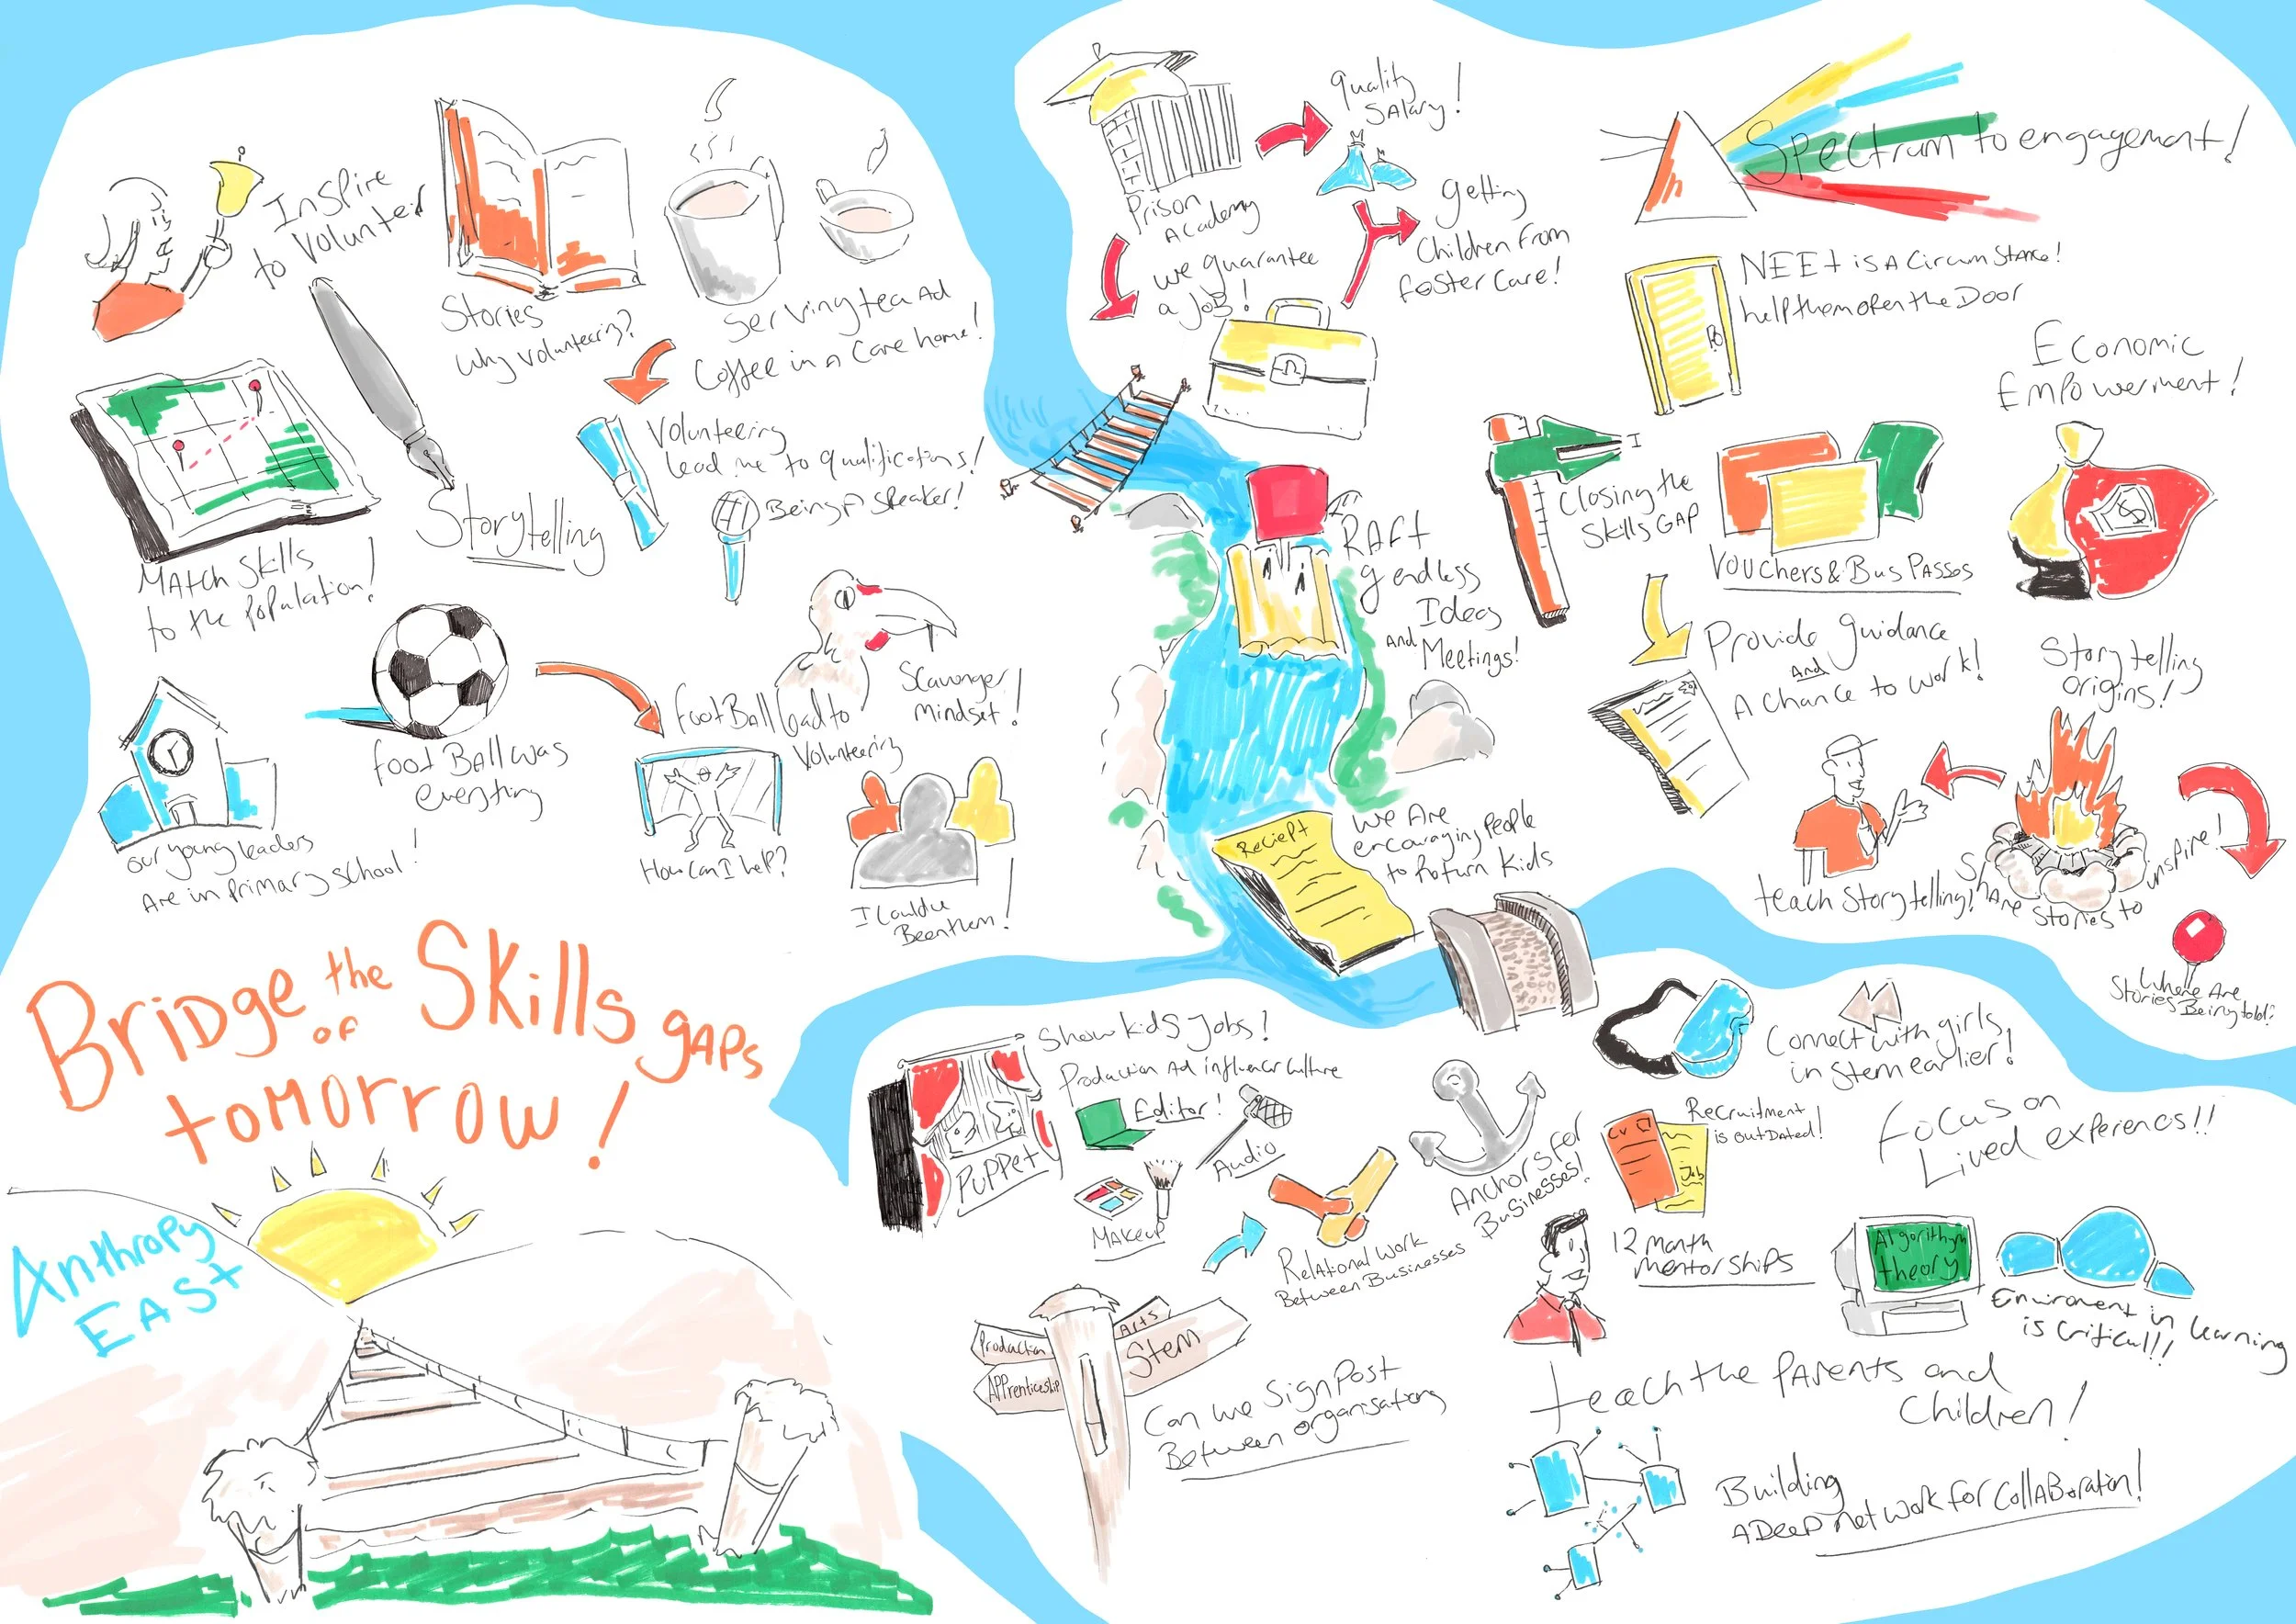 Inspire
to Volunteer
Stories
Why Volunteering?
Serving tea Ad
Coffee in A Care home!
Volunteering
lead me to qualifications!
Being A Speaker!
Storytelling
MAtch Skills
to the Population!
Football was
everything
Football lead to
Volunteering
Scavanger
Mindset!
How can I help?
our young leaders
Are in Primary School!
I could
Been them!
Bridge the Skills gaps
of
tomorrow!
Anthropy
EASt
Prison
Academy
quality
SAlary!
we guarantee
a JoB!
getting
Children from
foster Care!
Spectrum to engagement!
NEEt is A Circumstance!
help them open the Door
Economic
Empowerment!
Closing the
Skills GAP
Vouchers & Bus Passes
Provide guidance
And
A Chance to work!
RAft
of endless
Ideas
And
Meetings!
Reciept
We Are
encouraging People
to Return Kids
Storytelling
origins!
teach Storytelling!
Share Stories to inspire!
Where Are
Stories Being told?
Show kids Jobs!
Production Ad influencer culture
Editor!
Audio
Makeup
Puppet
Relational Work
Between Businesses
Anchors for
Businesses!
Connect with girls
in Stem earlier!
CV
Job
Recruitment
is outDated!
Focus on
Lived experiencs!!
12 month
Mentorships
Algorithm
theory
Enviroment in learning
is Critical!!
Production
Apprenticeship
Arts
Stem
Can we SignPost
Between organisations
teach the Parents and
Children!
Building
A Deep network for CollABoration!